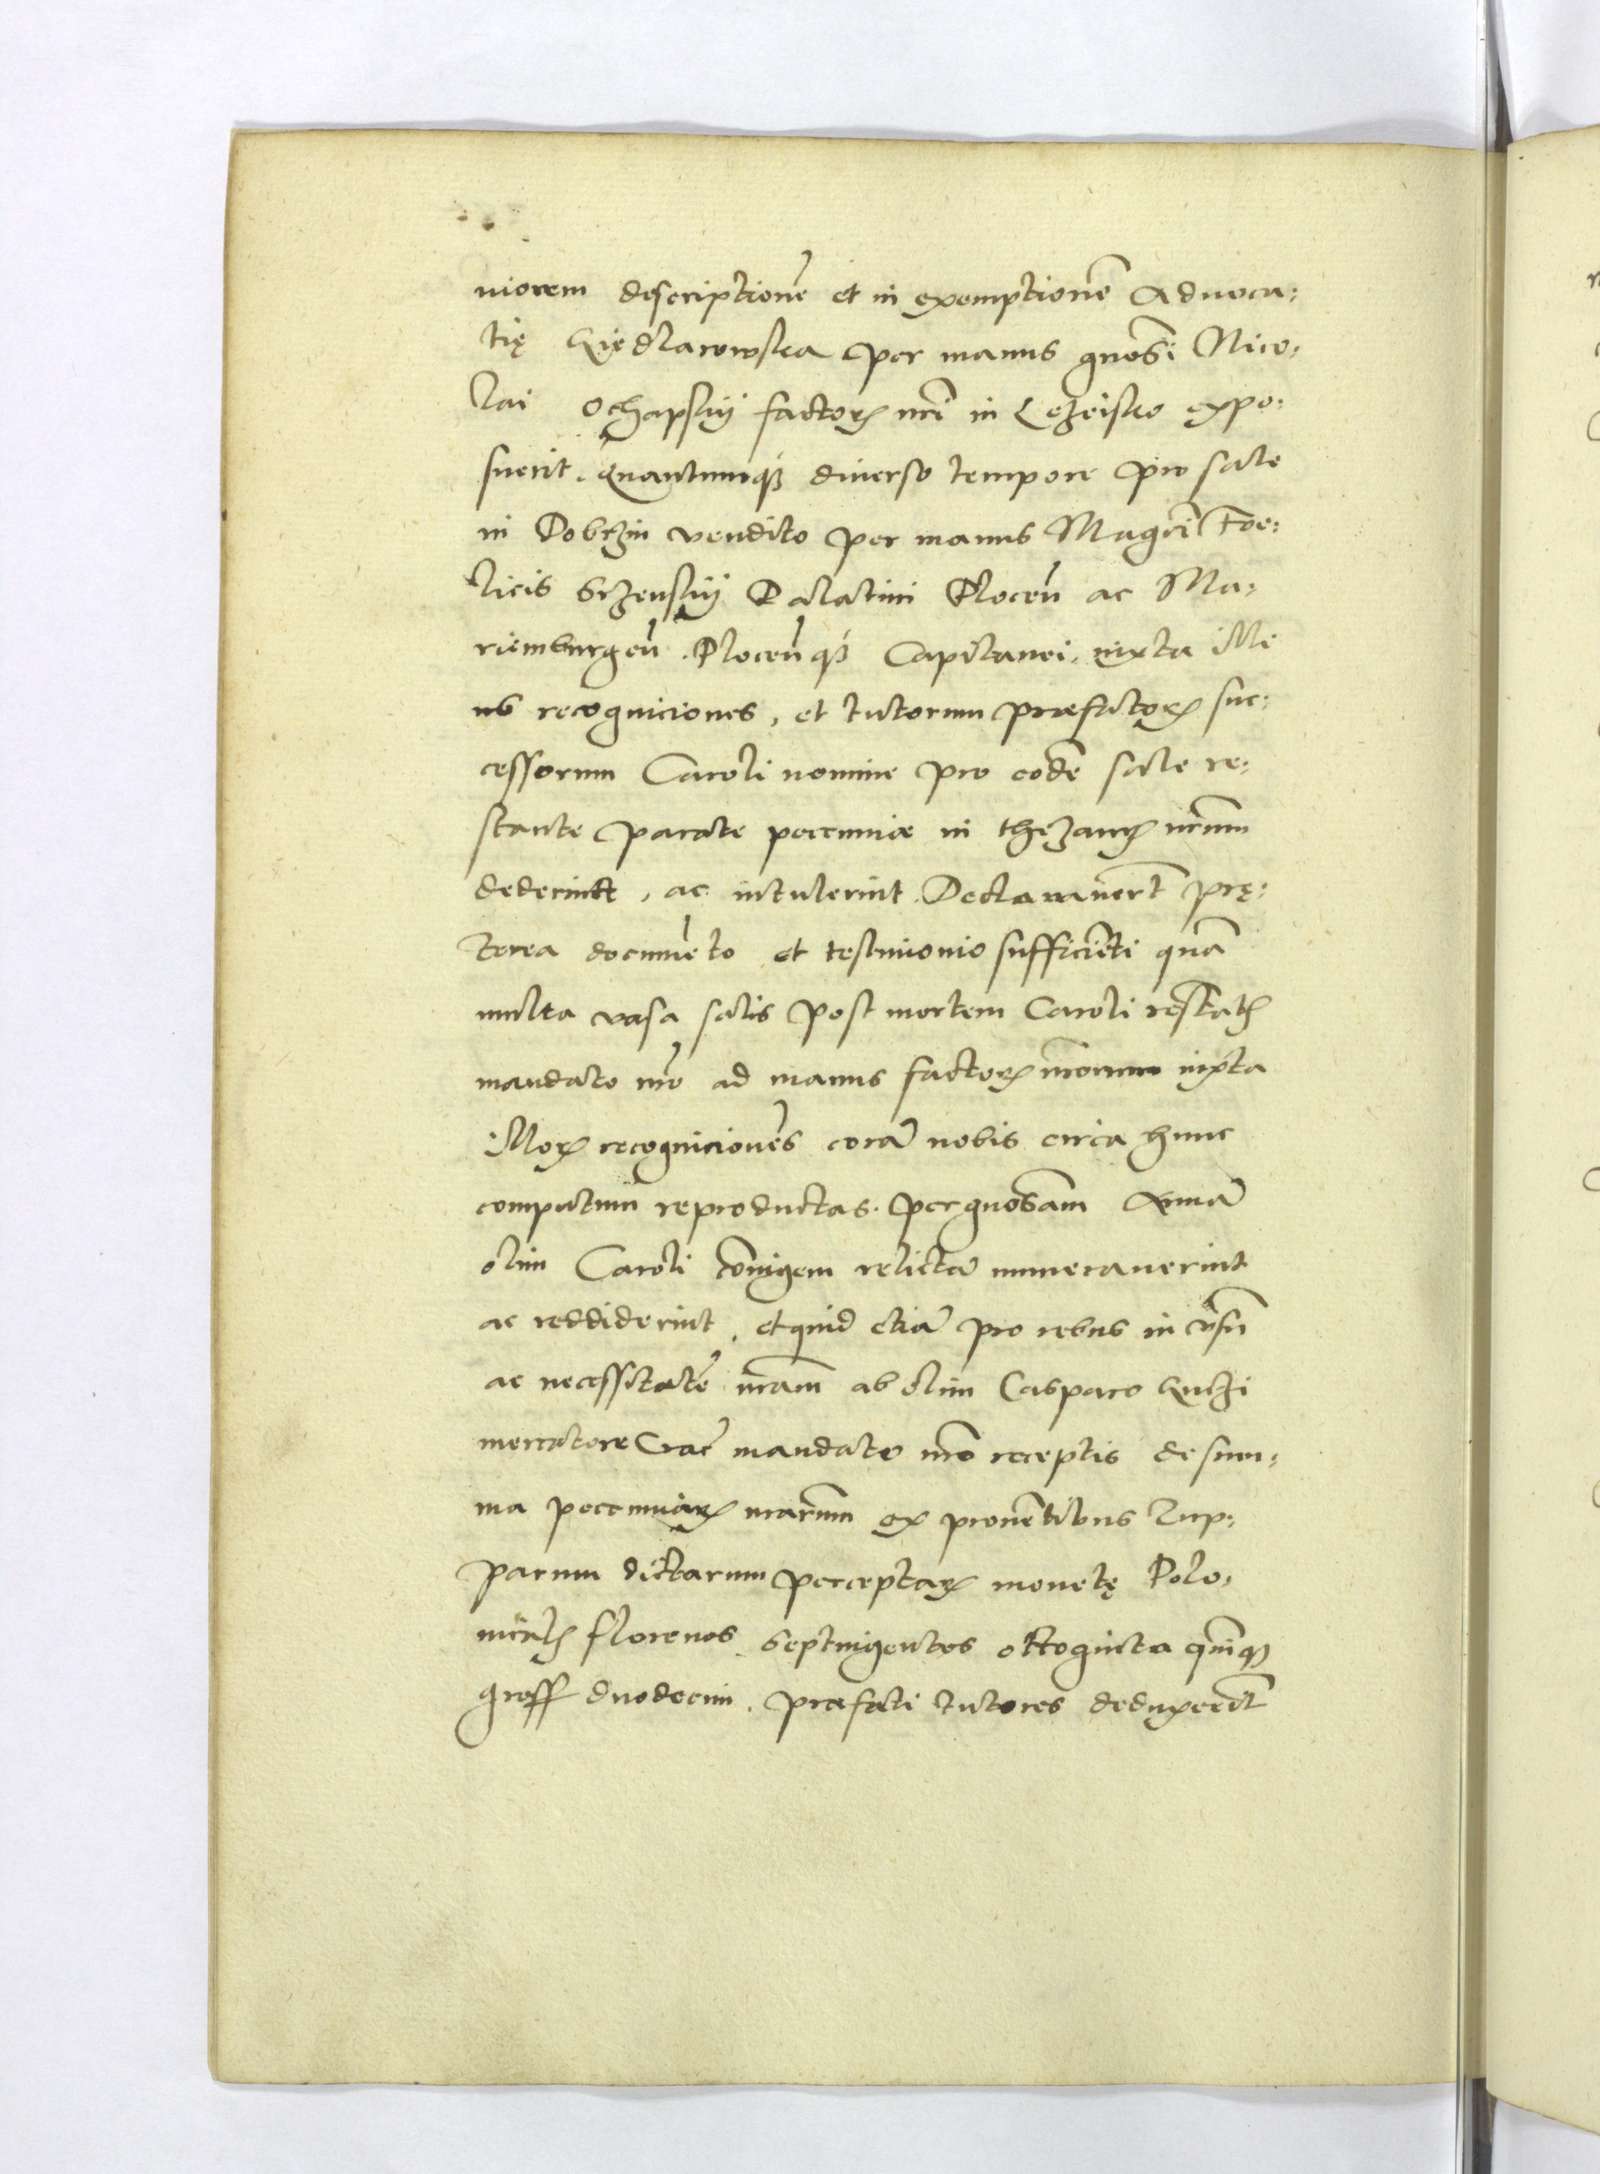 niorem descriptionē et in exemptionē Aduoca:
tię Kiedlarowska per manus gnosi Nico:
lai Ochapskij factorꝫ nri in Lezeisko expo:
suerit. Quantumqꝫ diuerso tempore pro sale
in Dobrzin vendito per manus Magci Foe:
licis Srzenskij Palatini Plocen̄ ac Ma:
riemburgen̄. Plocen̄qꝫ Capitanei, iuxta illi
us recogniciones, et tutorum praefatorꝫ suc:
cessorum Caroli nomine pro eodē sale re:
stante paratę pecuniae in thezaurꝫ nrum
dederint, ac intulerint. Declarauerūt prę:
terea documēto et testimonio sufficiēti quā
multa vasa salis post mortem Caroli restatꝫ
mandato nro ad manus factorꝫ nrorum iuxta
illorꝫ recogniciones corā nobis circa hunc
computum reproductas. per gnosam Annā
olim Caroli cōiugem relictā numerauerint
ac reddiderint, et quid etiā pro rebus in vsū
ac necessitatē nram ab olim Casparo Kuczi
mercatore Crac̄ mandato nro receptis de sum:
ma pecuniarꝫ nrarum ex prouētibus Zup:
parum dictarum perceptarꝫ monetę Polo:
nicalꝫ florenos septingentos octoginta quīqꝫ
gross duodecim. praefati tutores deduxerūt